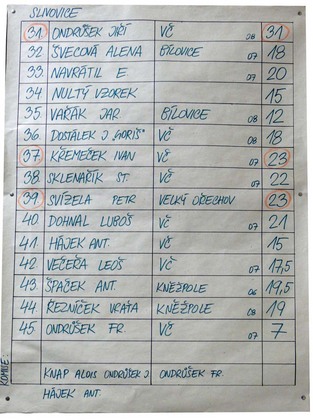 SLIVOVICE
31 ONDRŮŠEK JIŘÍ VČ 08 31
32 ŠVECOVÁ ALENA BÍLOVICE 07 18
33 NAVRÁTIL E 07 20
34 NULTÝ VZOREK 15
35 VAŘÁK JAR BÍLOVICE 08 12
36 DOSTÁLEK J "GORIŠ" VČ 08 18
37 KŘEMEČEK IVAN VČ 07 23
38 SKLENAŘÍK ST VČ 07 22
39 SVÍZELA PETR VELKÝ OŘECHOV 23
40 DOHNAL LUBOŠ VČ 07 21
41 HÁJEK ANT. VČ 15
42 VEČEŘA LEOŠ VČ 07 17,5
43 ŠPAČEK ANT KNĚŽPOLE 06 19,5
44 ŘEZNÍČEK VRAŤA KNĚŽPOLE 08 19
45 ONDRŮŠEK FR. VČ 07 7
KOMISE:
KNAP ALOIS ONDRŮŠEK J. ONDRŮŠEK FR.
HÁJEK ANT.